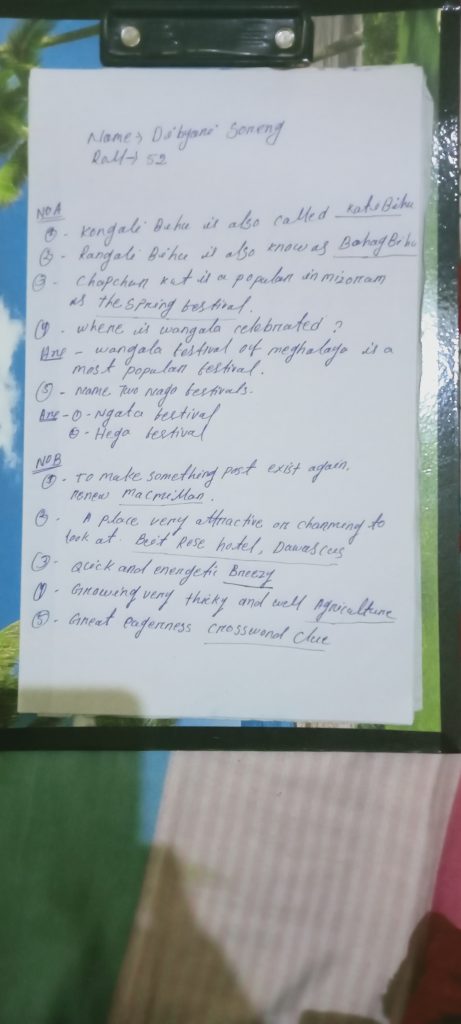 Name → Dibyani Soneng
Roll → 52
NO A
① - Kongali Bihu is also called Kati Bihu
② - Rangali Bihu is also know as Bohag Bihu
③ - Chapchun kut is a populan in mizonam
as the spning bestival.
④ - where is wangala celebnated ?
Ans - wangala festival of meghalaya is a
most populan bestival.
⑤ - Name Two Naga bestivals.
Ans - ① - Ngata bestival
② - Hega bestival
NO B
① - To make something past exist again.
nenew macmillan.
② - A place veny attnactive on chanming to
look at. Beit Rose hotel, Damascus
③ - Quick and energetic Bneezy
④ - Gnowing veny thicky and well Agniculture
⑤ - Gneat eagenness cnossword clue